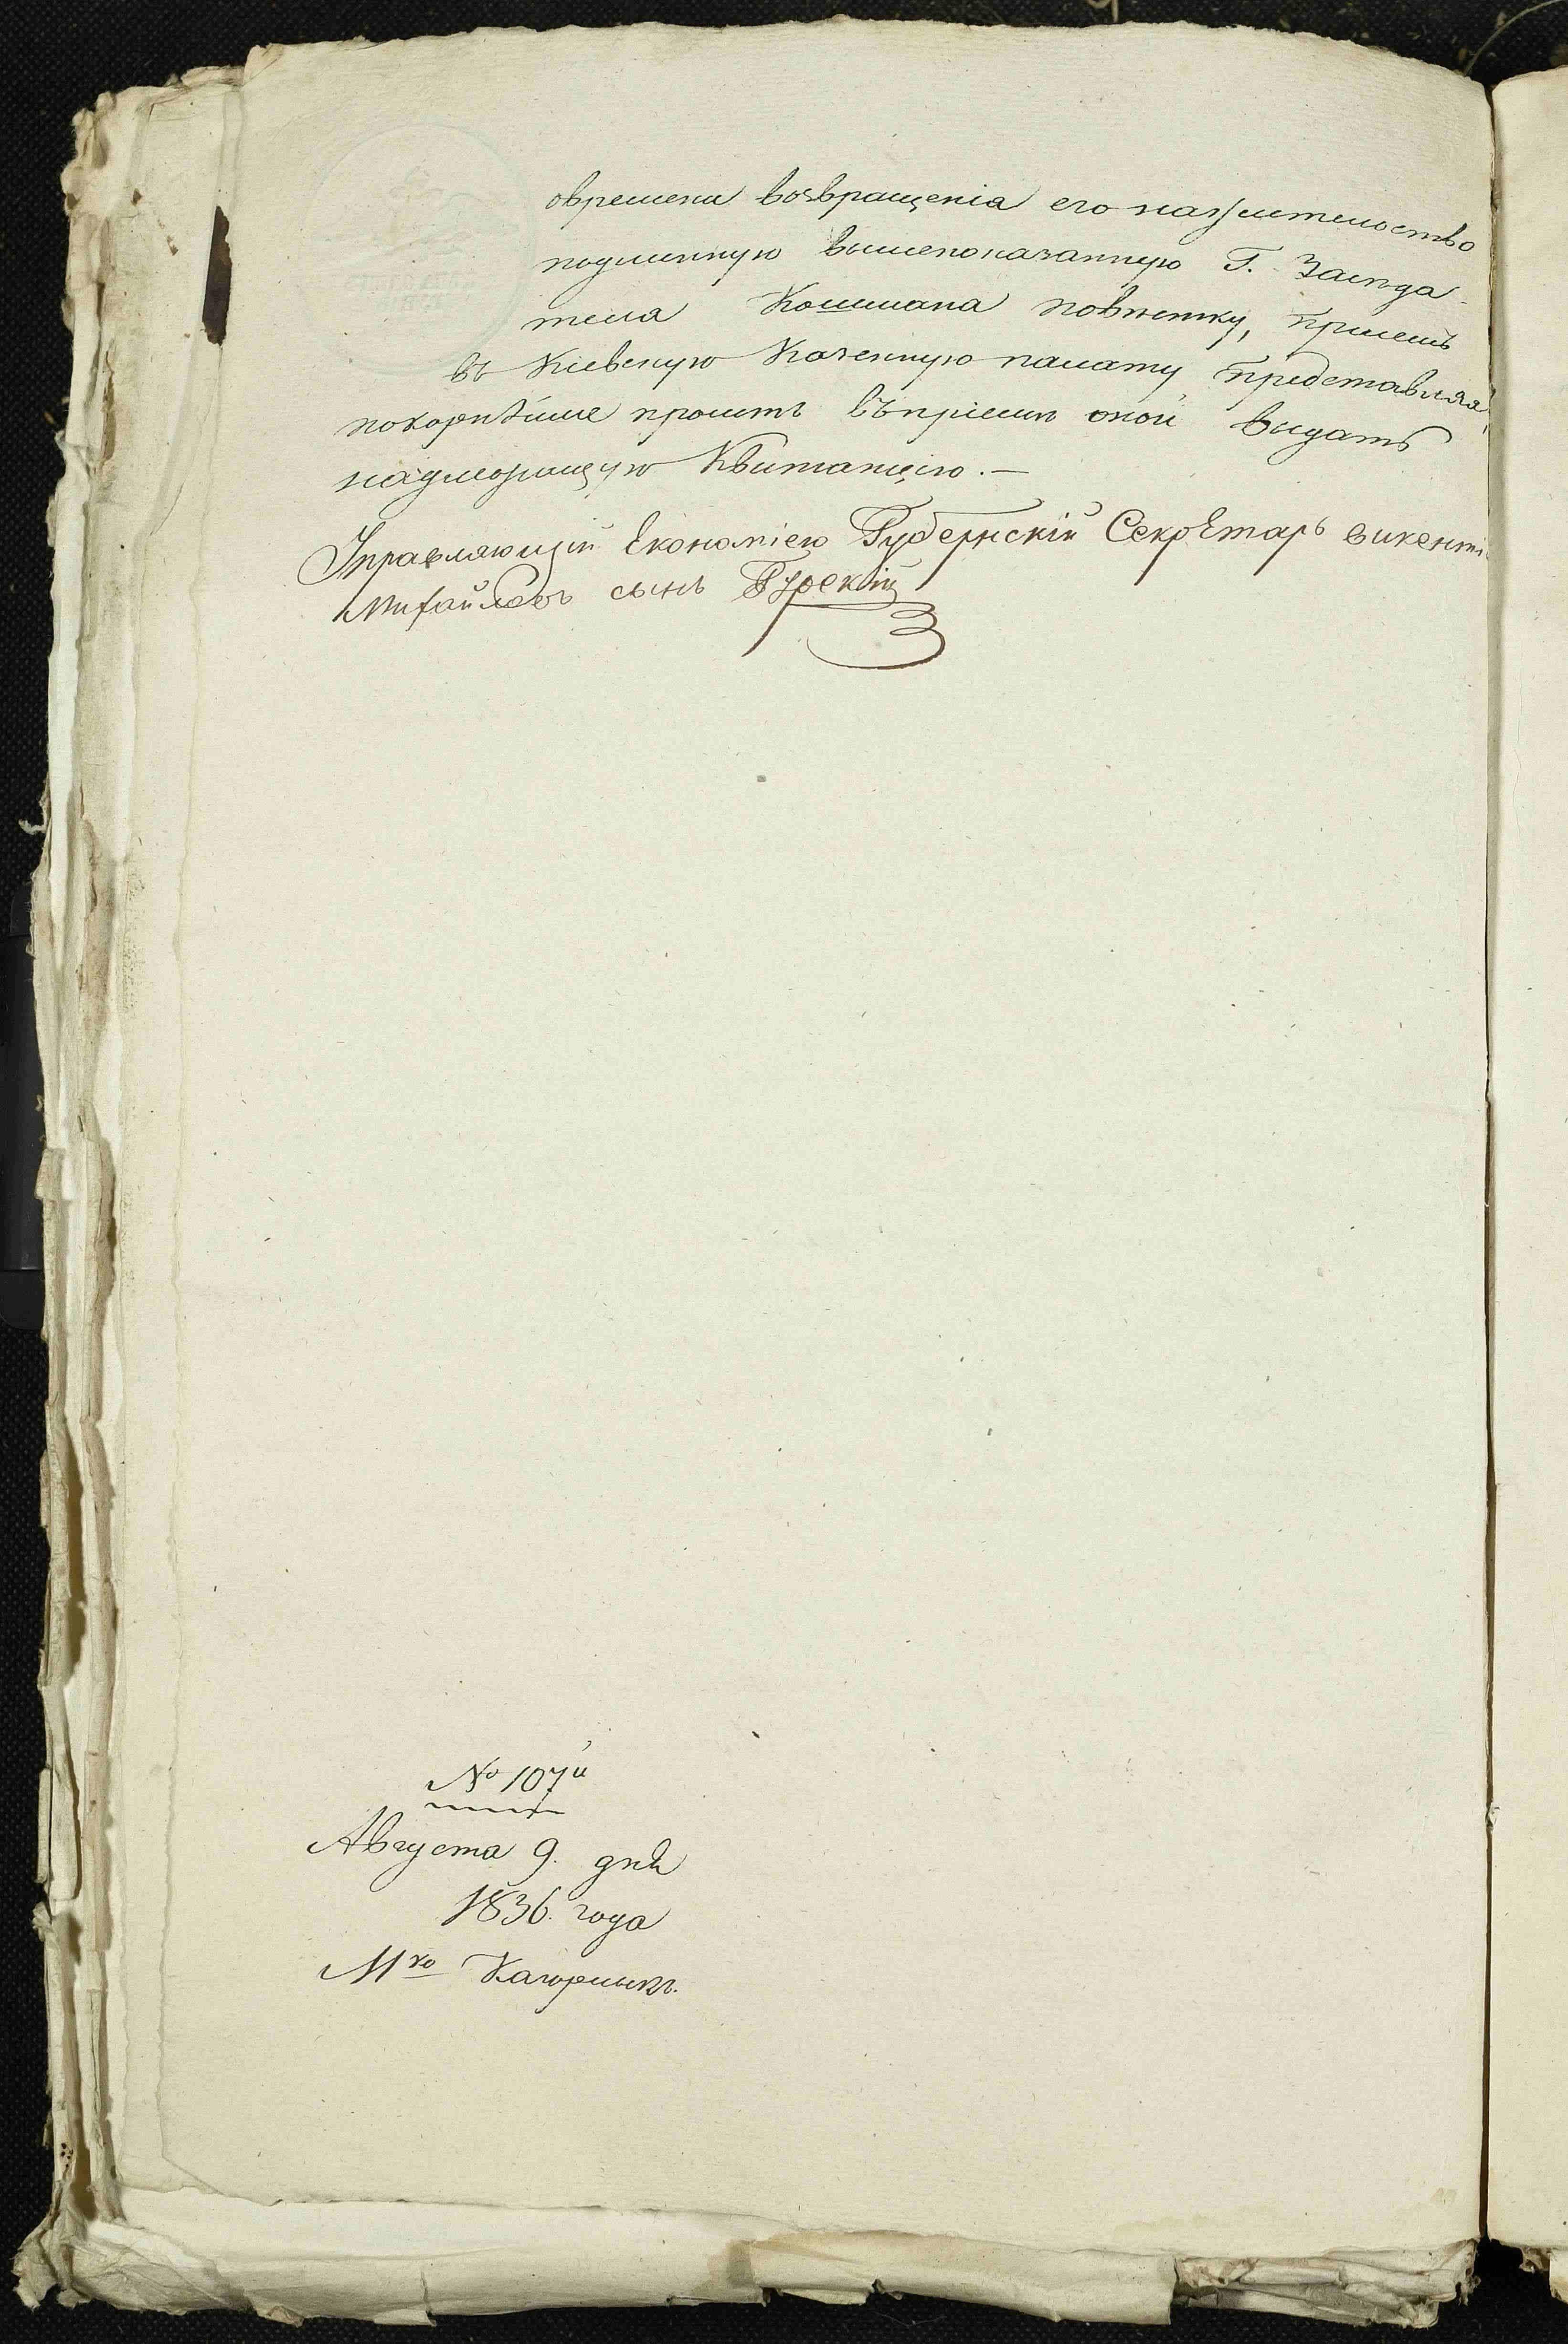 овремени возвращенія его нажительство
подлинную вышепоказанную Г. Засѣда-
теля Кошмана повѣстку, присемъ
въ Кіевскую Казенную палату представляя,
покорнѣйше проситъ въпріемѣ оной выдать
надлежащую Квитанцію.—
Управляющій Економіею Губернскій СекрЕтарь викенті
Михайловъ сынъ Турскій
№ 107й
Августа 9. дня
1836. года
Мко Кагорлыкъ.